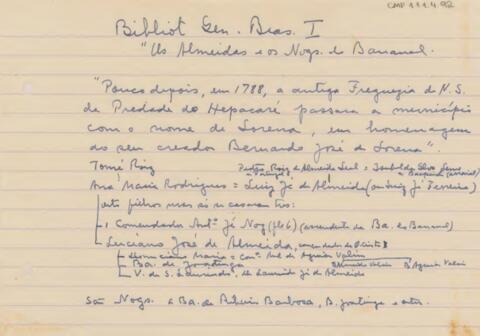 CMP 1.1.4.92
Bibliot Gen. Bras. I
"Os Almeidas e os Nogs. de Bananal.
"Pouco depois, em 1788, a antiga Freguezia de N.S.
da Piedade do Hepacaré passara a município
com o nome de Lorena, em homenagem
do seu creador Bernardo José de Lorena".
Tomé Roiz
Pedro Roiz de Almeida Leal = Izabel da Silva
Portugal
Ana Maria Rodrigues = Luiz Jé de Almeida (ou Luiz Jé Ferreira)
oito filhos mas só casaram tres:
1 Comendador Antº Jé Nog (fl 6) (ascendente da Ba. de Bananal)
Luciano José de Almeida, comendador
Maria = com. Mel de Aguiar Valim
Ba. de Joatinga
Almeida Valim B. Aguiar Valim
V. de S. Laurindo, de Laurindo Jé de Almeida
São Nogs. a Ba. de Ribeiro Barbosa, B. Joatinga e outros.